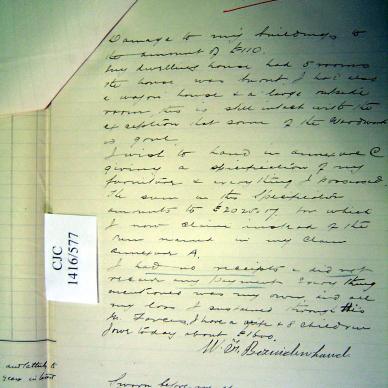 Damage to my buildings to
the amount of £110.
My dwelling house had 5 rooms
the house was burnt I had also
a wagon house & a large outside
room this is still intact with the
exception that some of the Woodwork
is gone.
I wish to hand in annexure C
giving a specification of my
furniture & everything I possessed
The sum in the Specification
amounts to £2020.17. for which
I now claim instead of the
sum named in my Claim
annexure A.
I had no receipts & did not
receive any payment Everything
mentioned was my own and all
my loss I sustained through this
H. Forces. I have a wife & 8 children
I owe today about £1600.
W. F. Bezuidenhoud
Sworn before me
CJC
1416/577